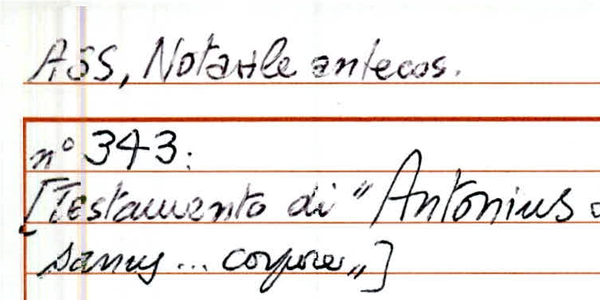 ASS, Notarile antecos.
n° 343:
[Testamento di "Antonius
sanus ... corpore"]